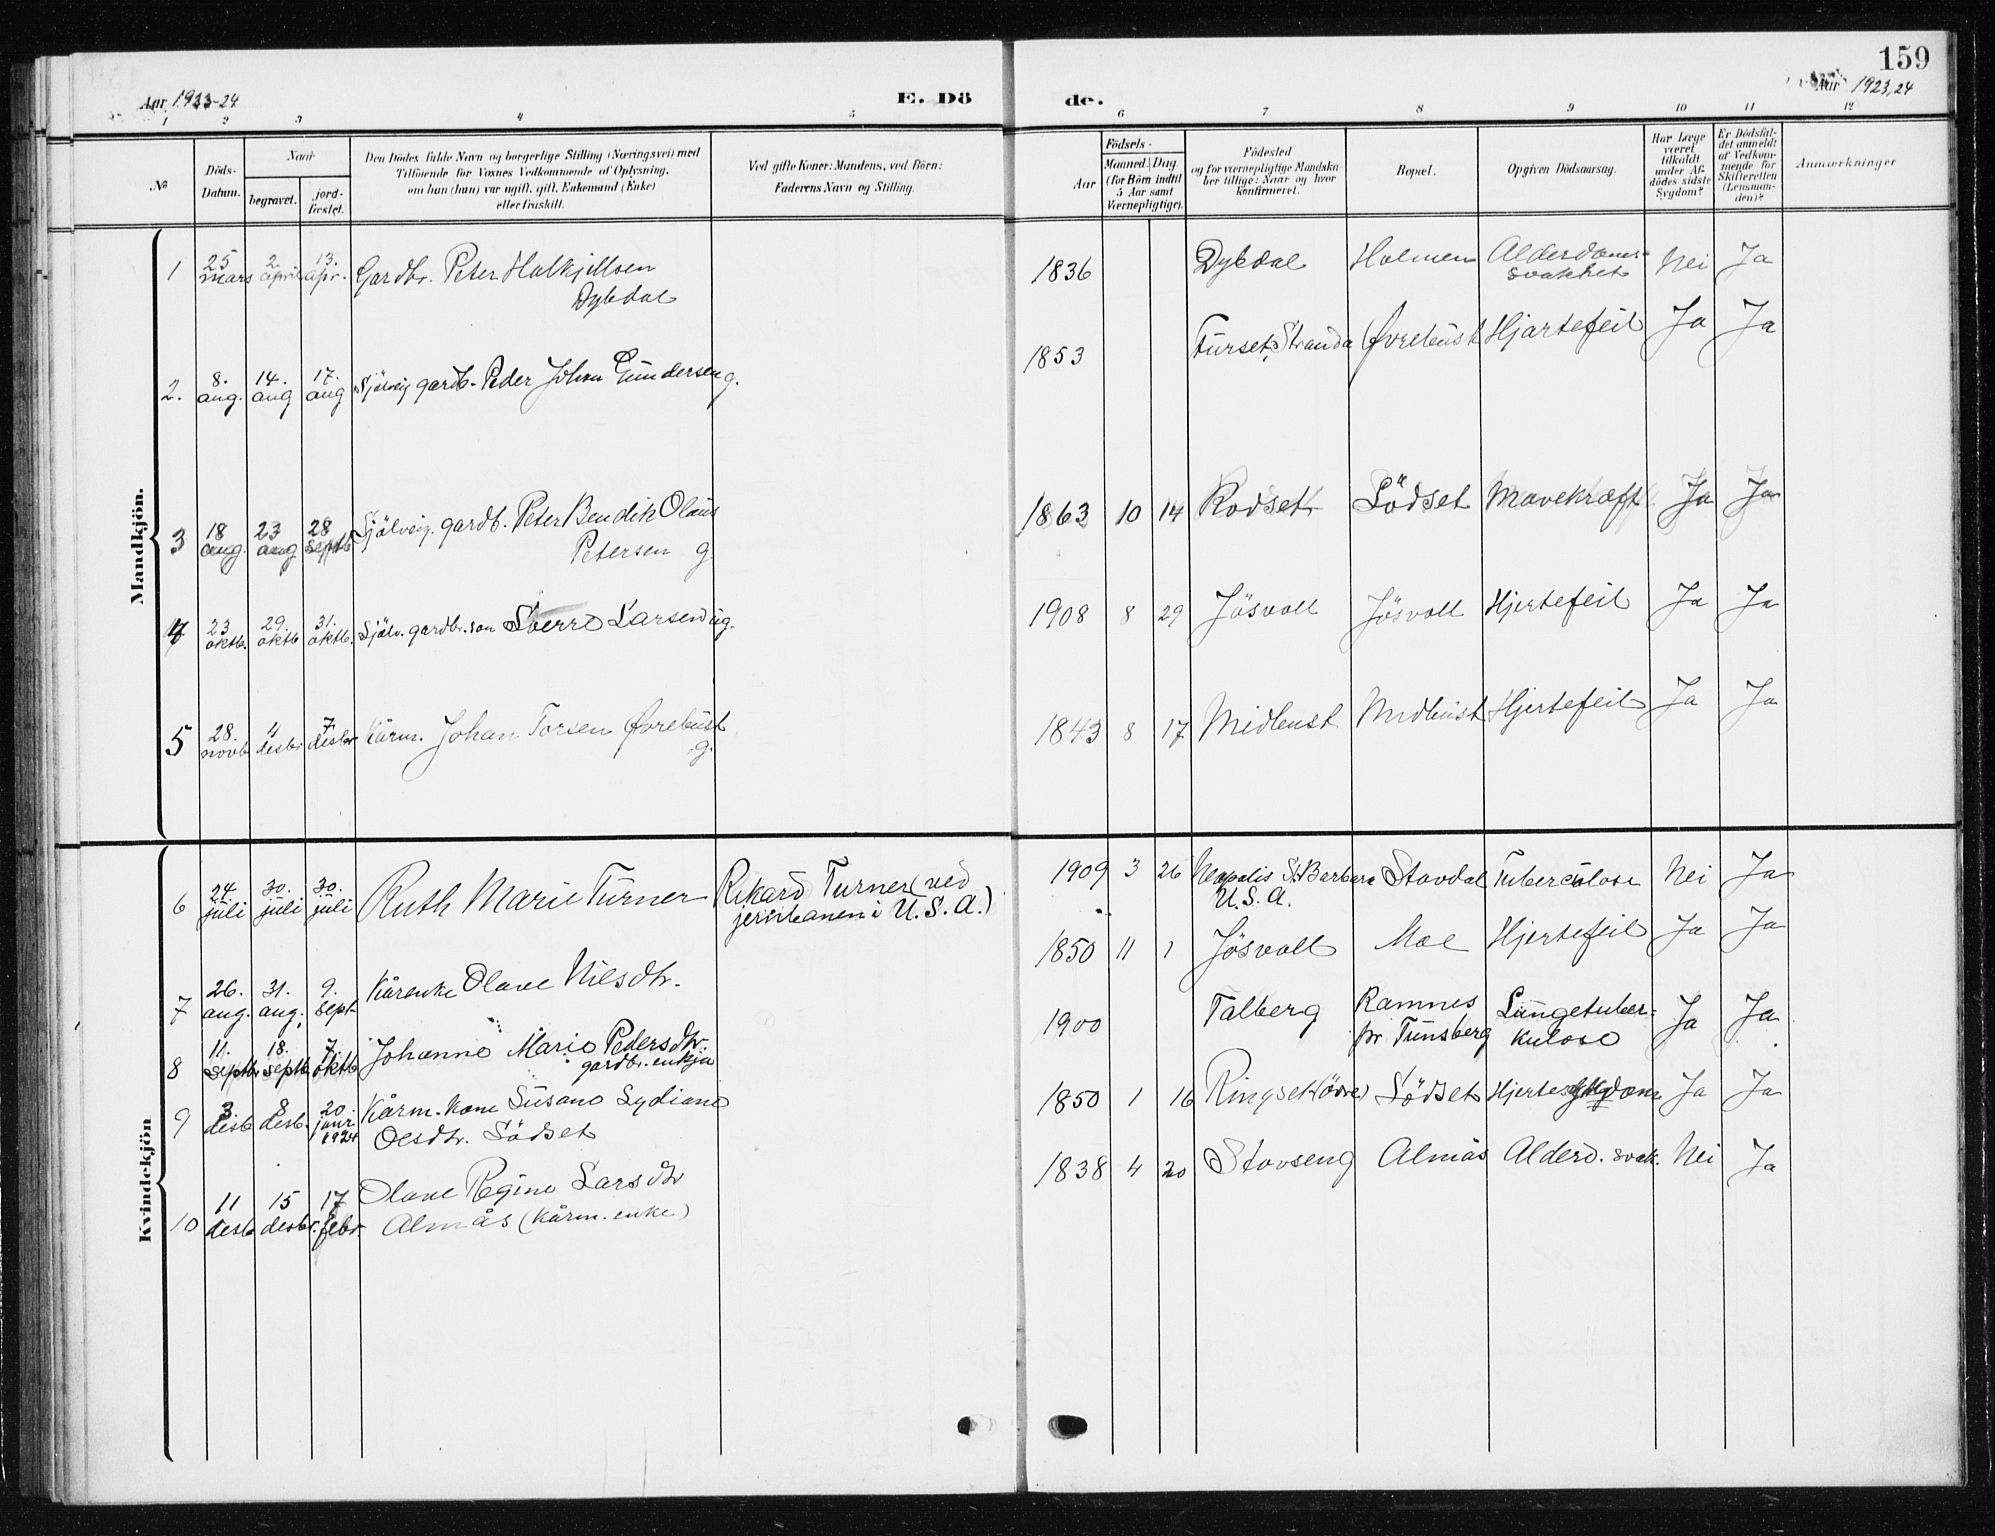 159
Aar 1923-24
E. Dö
de.
Aar 1923,24
1 2 3 4 5 6 7 8 9 10 11 12
No
Döds-
Datum.
Naar
begravet.
jord-
fæstet.
Den Dödes fulde Navn og borgerlige Stilling (Næringsvei) med
Tilföiende for Voxnes Vedkommende af Oplysning,
om han (hun) var ugift, gift, Enkemand (Enke)
eller fraskilt.
Ved gifte Koner: Mandens, ved Börn:
Faderens Navn og Stilling.
Födsels-
Aar
Maaned Dag
(for Börn indtil
5 Aar samt
Værnepligtige).
Födested
og for værnepligtige Mandska-
ber tillige: Naar og hvor
konfirmeret.
Bopæl.
Opgiven Dödsaarsag.
Har Læge
været
tilkaldt
under Af-
dödes sidste
Sygdom?
Er Dödsfal-
det anmeldt
af Vedkom-
mende for
Skifteretten
(Lensman-
den)?
Anmærkninger
Mandkjön.
1 25 mars 2. april 13. apr. Gardbr. Peter Halkjellsen
Dybdal
1836 Dybdal Holmen Alderdoms-
svakhet Nei Ja
2. 8. aug. 14. aug 17. aug Sjølveig gardb. Peder Johan Gundersen g.
1853 Furset, Stranda Øvrebust Hjartefeil Ja Ja
3 18 aug. 23 aug 28 septb Sjølveig. gardb. Peter Bendik Olaus
Petersen g.
1863 10 14 Rodset Lödset Mavekræft Ja Ja
4 23 oktb. 29. oktb 31. oktb. Sjølv. gardbr. son Sverre Larsen ug.
1908 8 29 Jösvoll Jösvoll Hjertefeil Ja Ja
5 28. novb 4 desbr 7. desbr Kårm. Johan Torsen Øvrebust
g.
1843 8 17 Midbust Midbust Hjertefeil Ja Ja
Kvindekjön
6 24 juli 30. juli 30. juli Ruth Marie Turner Rikard Turner (ved
jernbanen i U.S.A.)
1909 3 26 St. Barbara Stavdal Tuberculose Nei Ja
U.S.A.
7 26. aug. 31. aug. 9. sept Kårenke Olave Nilsdtr.
1850 11 1 Jösvoll Moe Hjertefeil Ja Ja
8 11. septbr 18. septb. 7. oktb Johanne Marie Pedersdtr.
gardbr. enkja
1900 Talberg Ramnes
pr Tunsberg Lungetuber-
kulose Ja Ja
9 3. desb 8 desb. 20. janr. 1924 Kårm. kone Susane Sydiane
Olsdtr. Södset
1850 1 16 Ringset (övre) Södset Hjertesykdom Ja Ja
10 11 desb 15 desbr. 17 febr. Olave Regine Larsdtr
Almås (Kårm. enke)
1838 4 20 Stavseng Almås Alderd. svak. Nei Ja